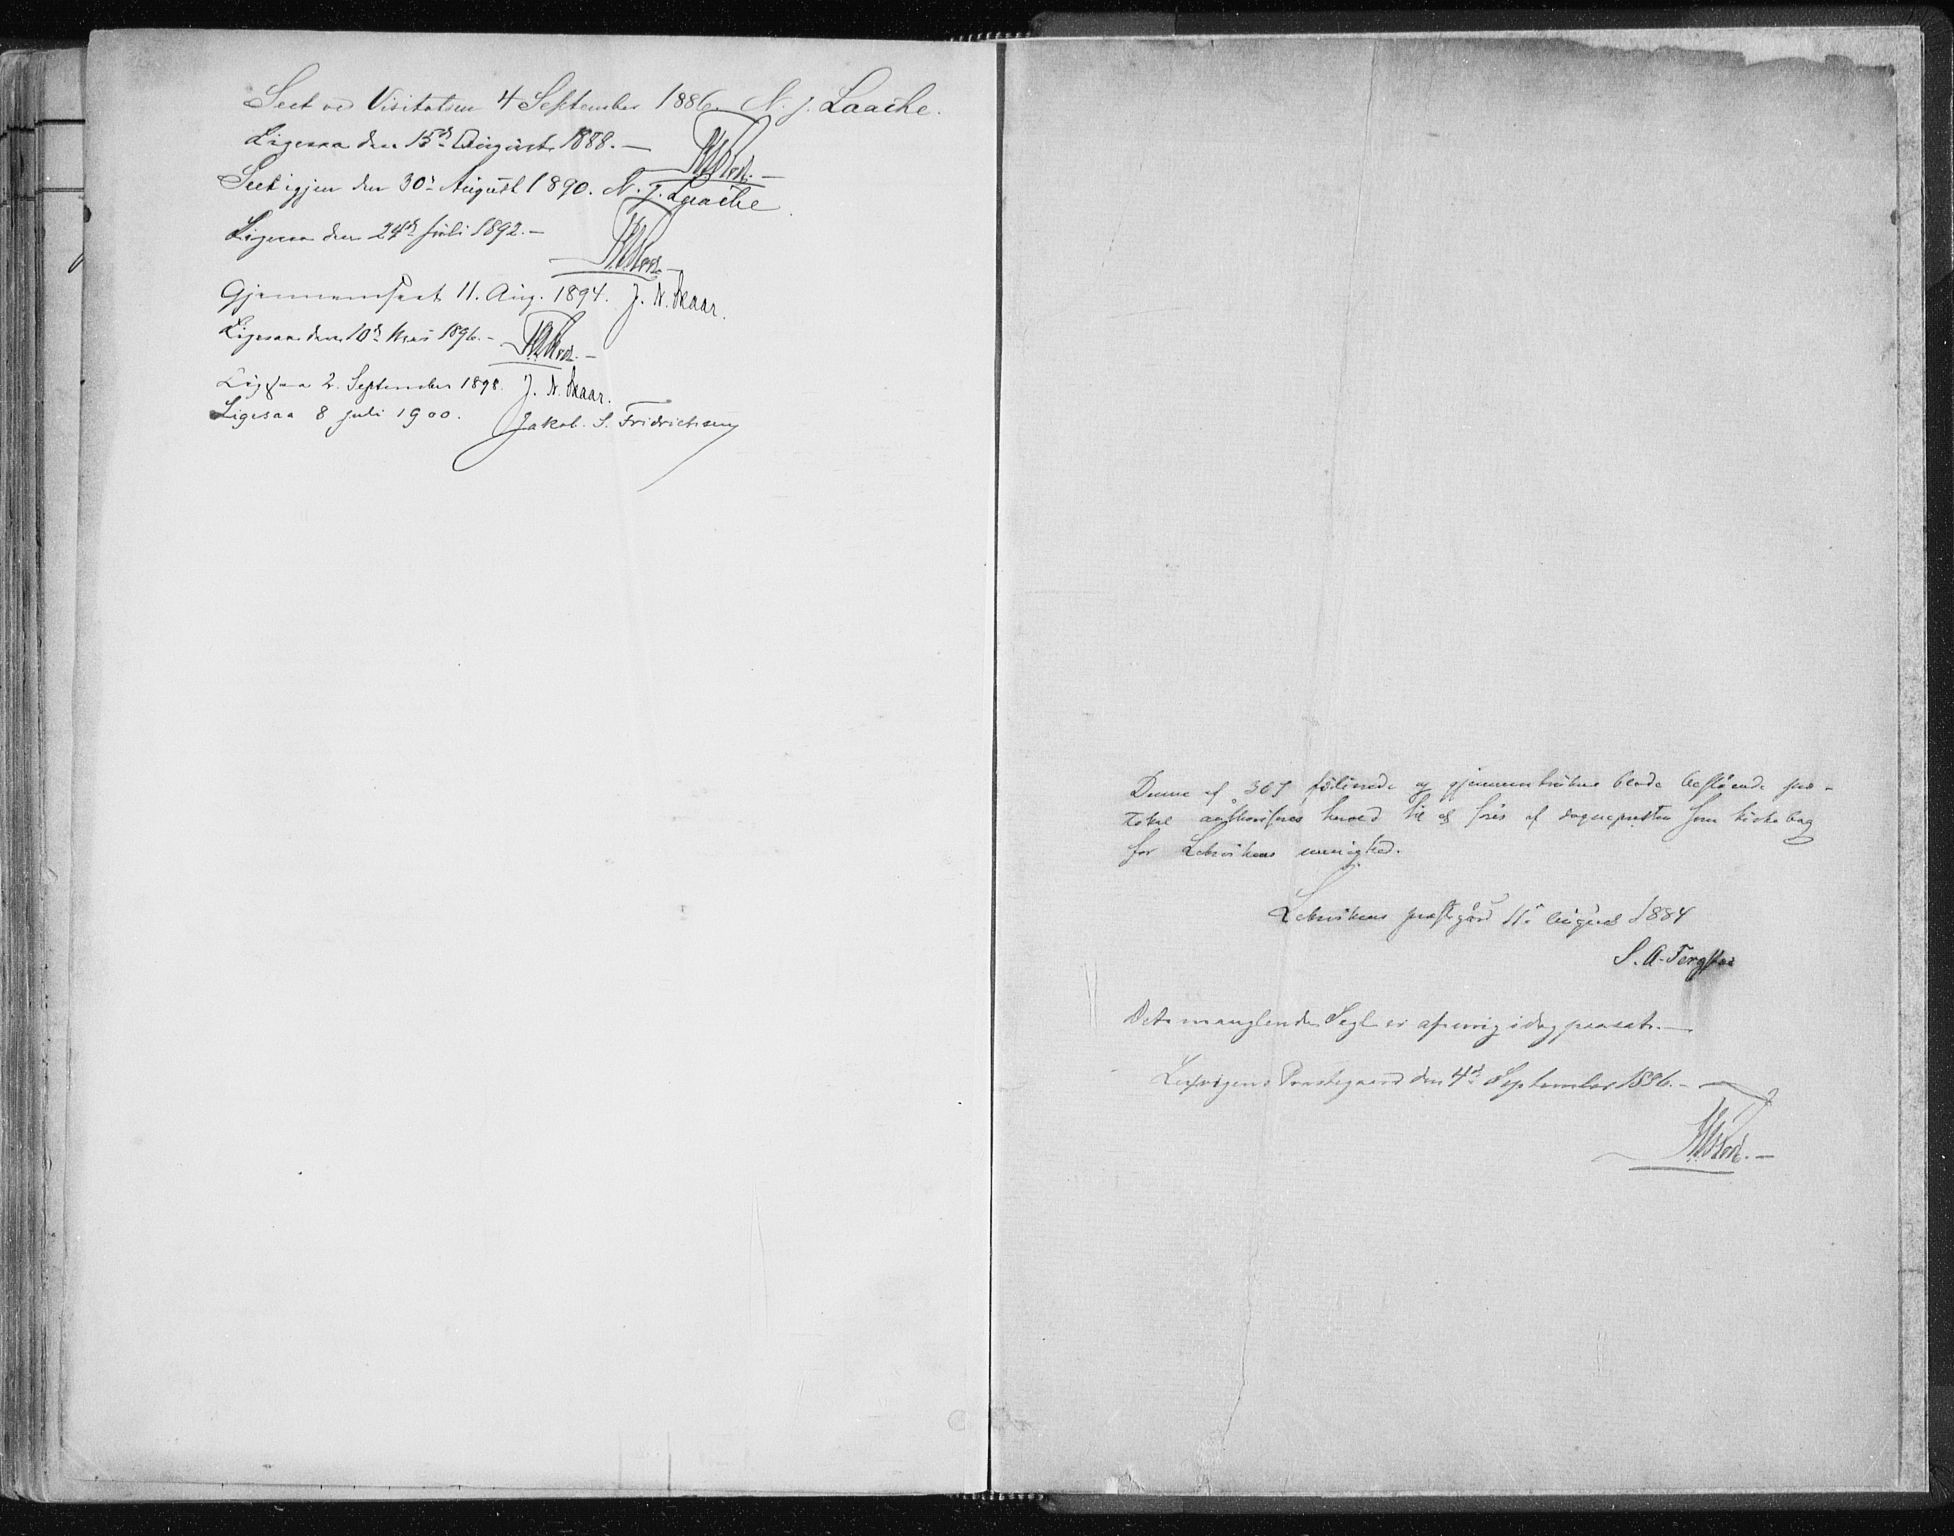 Seet ved Visitatsen 4 September 1886. N. J. Laache.
Ligesaa den 15d August 1888. —
Seet igjen den 30d August 1890. N. J. Laache
Ligesaa den 24d Juli 1892. —
Gjennemseet 11. Aug. 1894. J. N. Skaar.
Ligesaa den 10d Mai 1896. —
Ligesaa 2. September 1898. J. N. Skaar.
Ligesaa 8 juli 1900. Jakob. S. Fridrichsen
Denne af 367 folierede og gjennemtrukne blade bestående pro-
tokol authoriseres herved til at føres af sognepresten som kirkebog
for Leksvikens menighed.
Leksvikens præstegård 11. august 1884
S. A.
Det manglende Segl er af mig idag paasat. —
Lexvigens Præstegaard den 4d September 1886. —